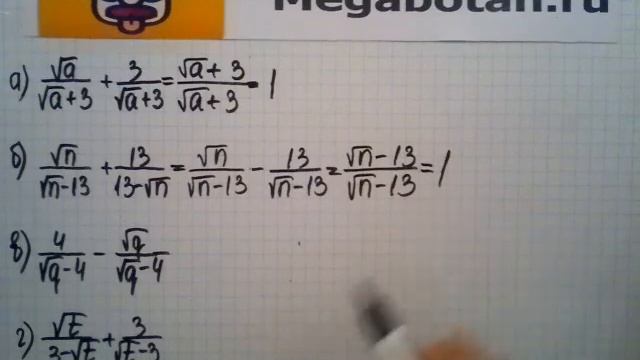 Megabotan.ru
а) √a/(√a+3) + 3/(√a+3) = (√a+3)/(√a+3) - 1
б) √n/(√n-13) + 13/(13-√n) = √n/(√n-13) - 13/(√n-13) = (√n-13)/(√n-13) = 1
в) 4/(√q-4) - √q/(√q-4)
г) √t/(3-√t) + 3/(√t-3)